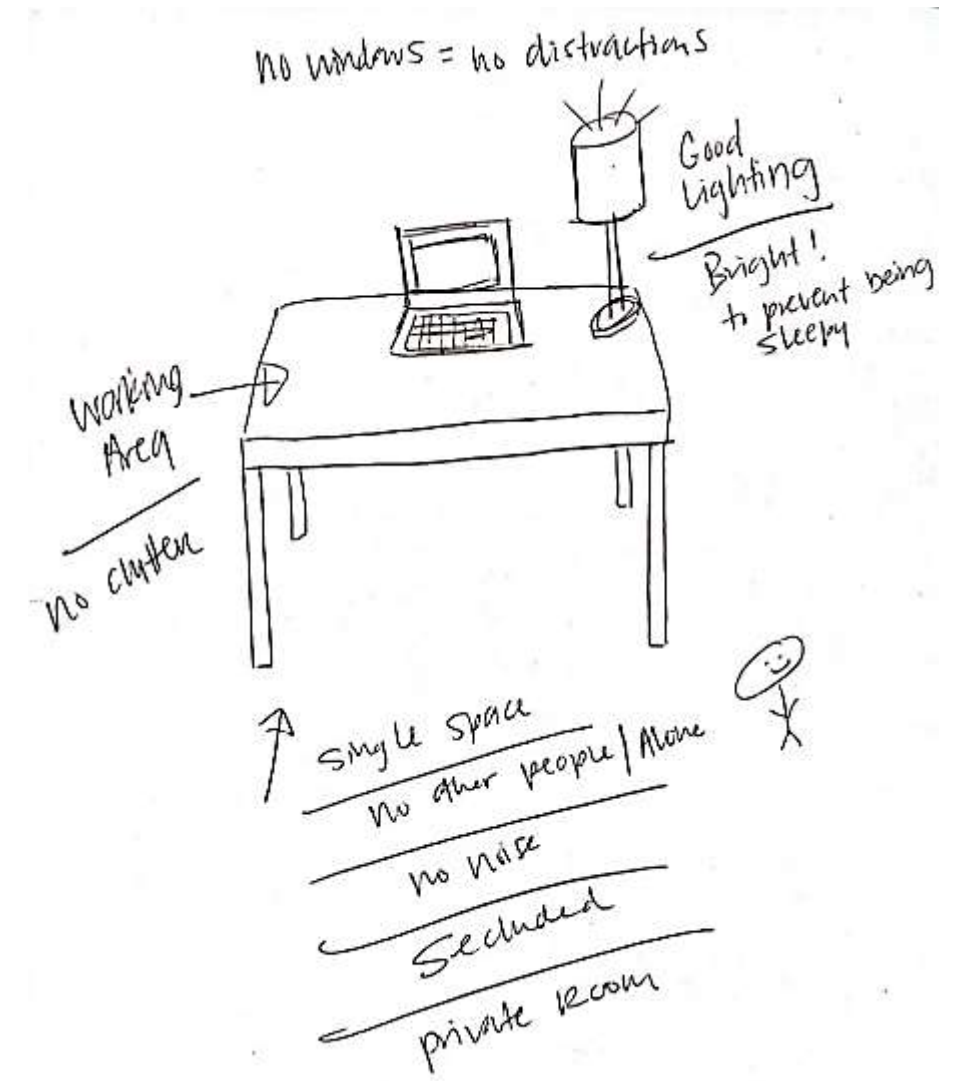 no windows = no distractions
Good
Lighting
Bright!
to prevent being
sleepy
Working
Area
No clutter
single space
No other people / Alone
no noise
Secluded
private Room